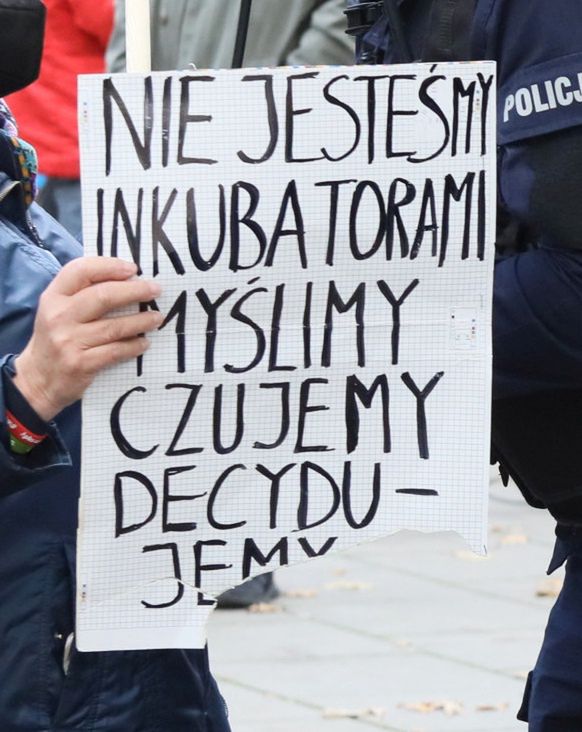 NIE JESTEŚMY
INKUBATORAMI
MYŚLIMY
CZUJEMY
DECYDU-
JEMY
POLICJ